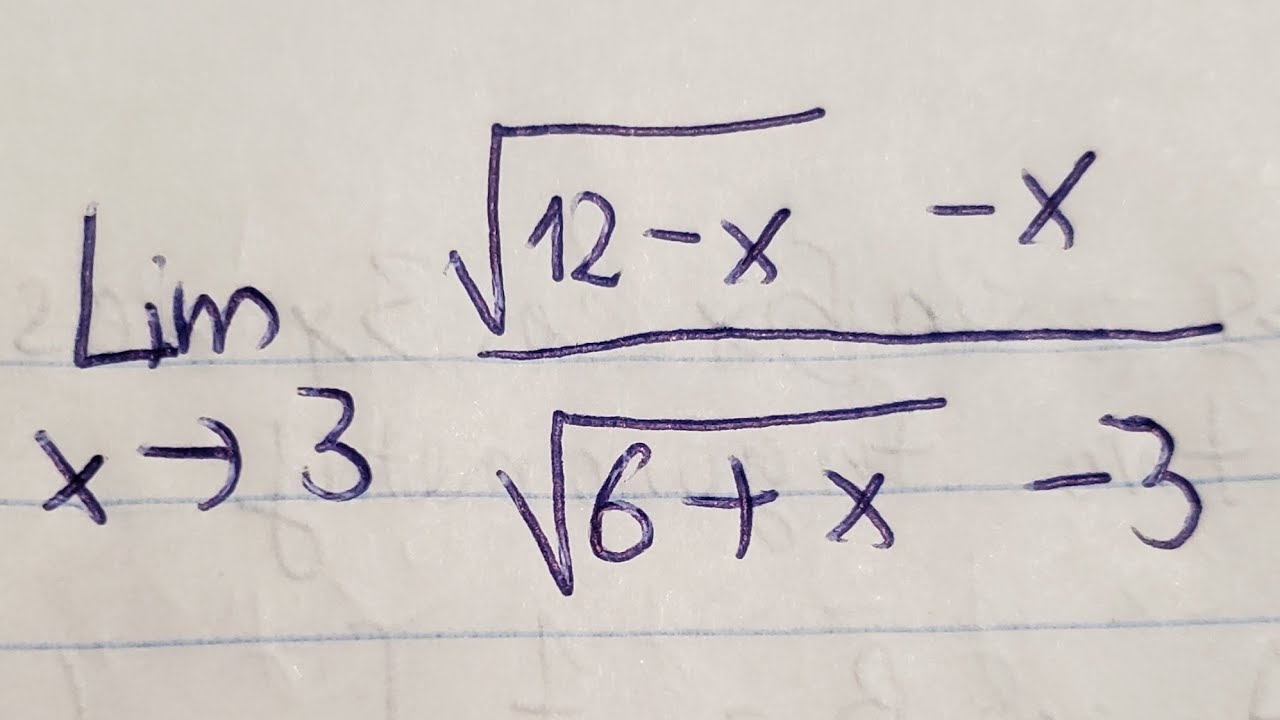 Lim x→3 (√(12-x) -x) / (√(6+x) -3)